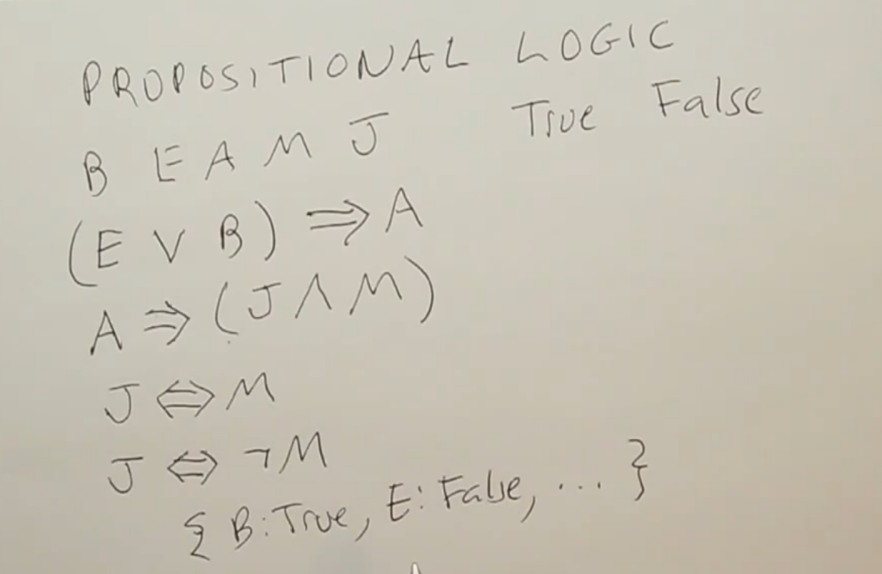 PROPOSITIONAL LOGIC
B E A M J True False
(E V B) ⇒ A
A ⇒ (J Λ M)
J ⇔ M
J ⇔ ¬M
{ B:True, E:False, ... }